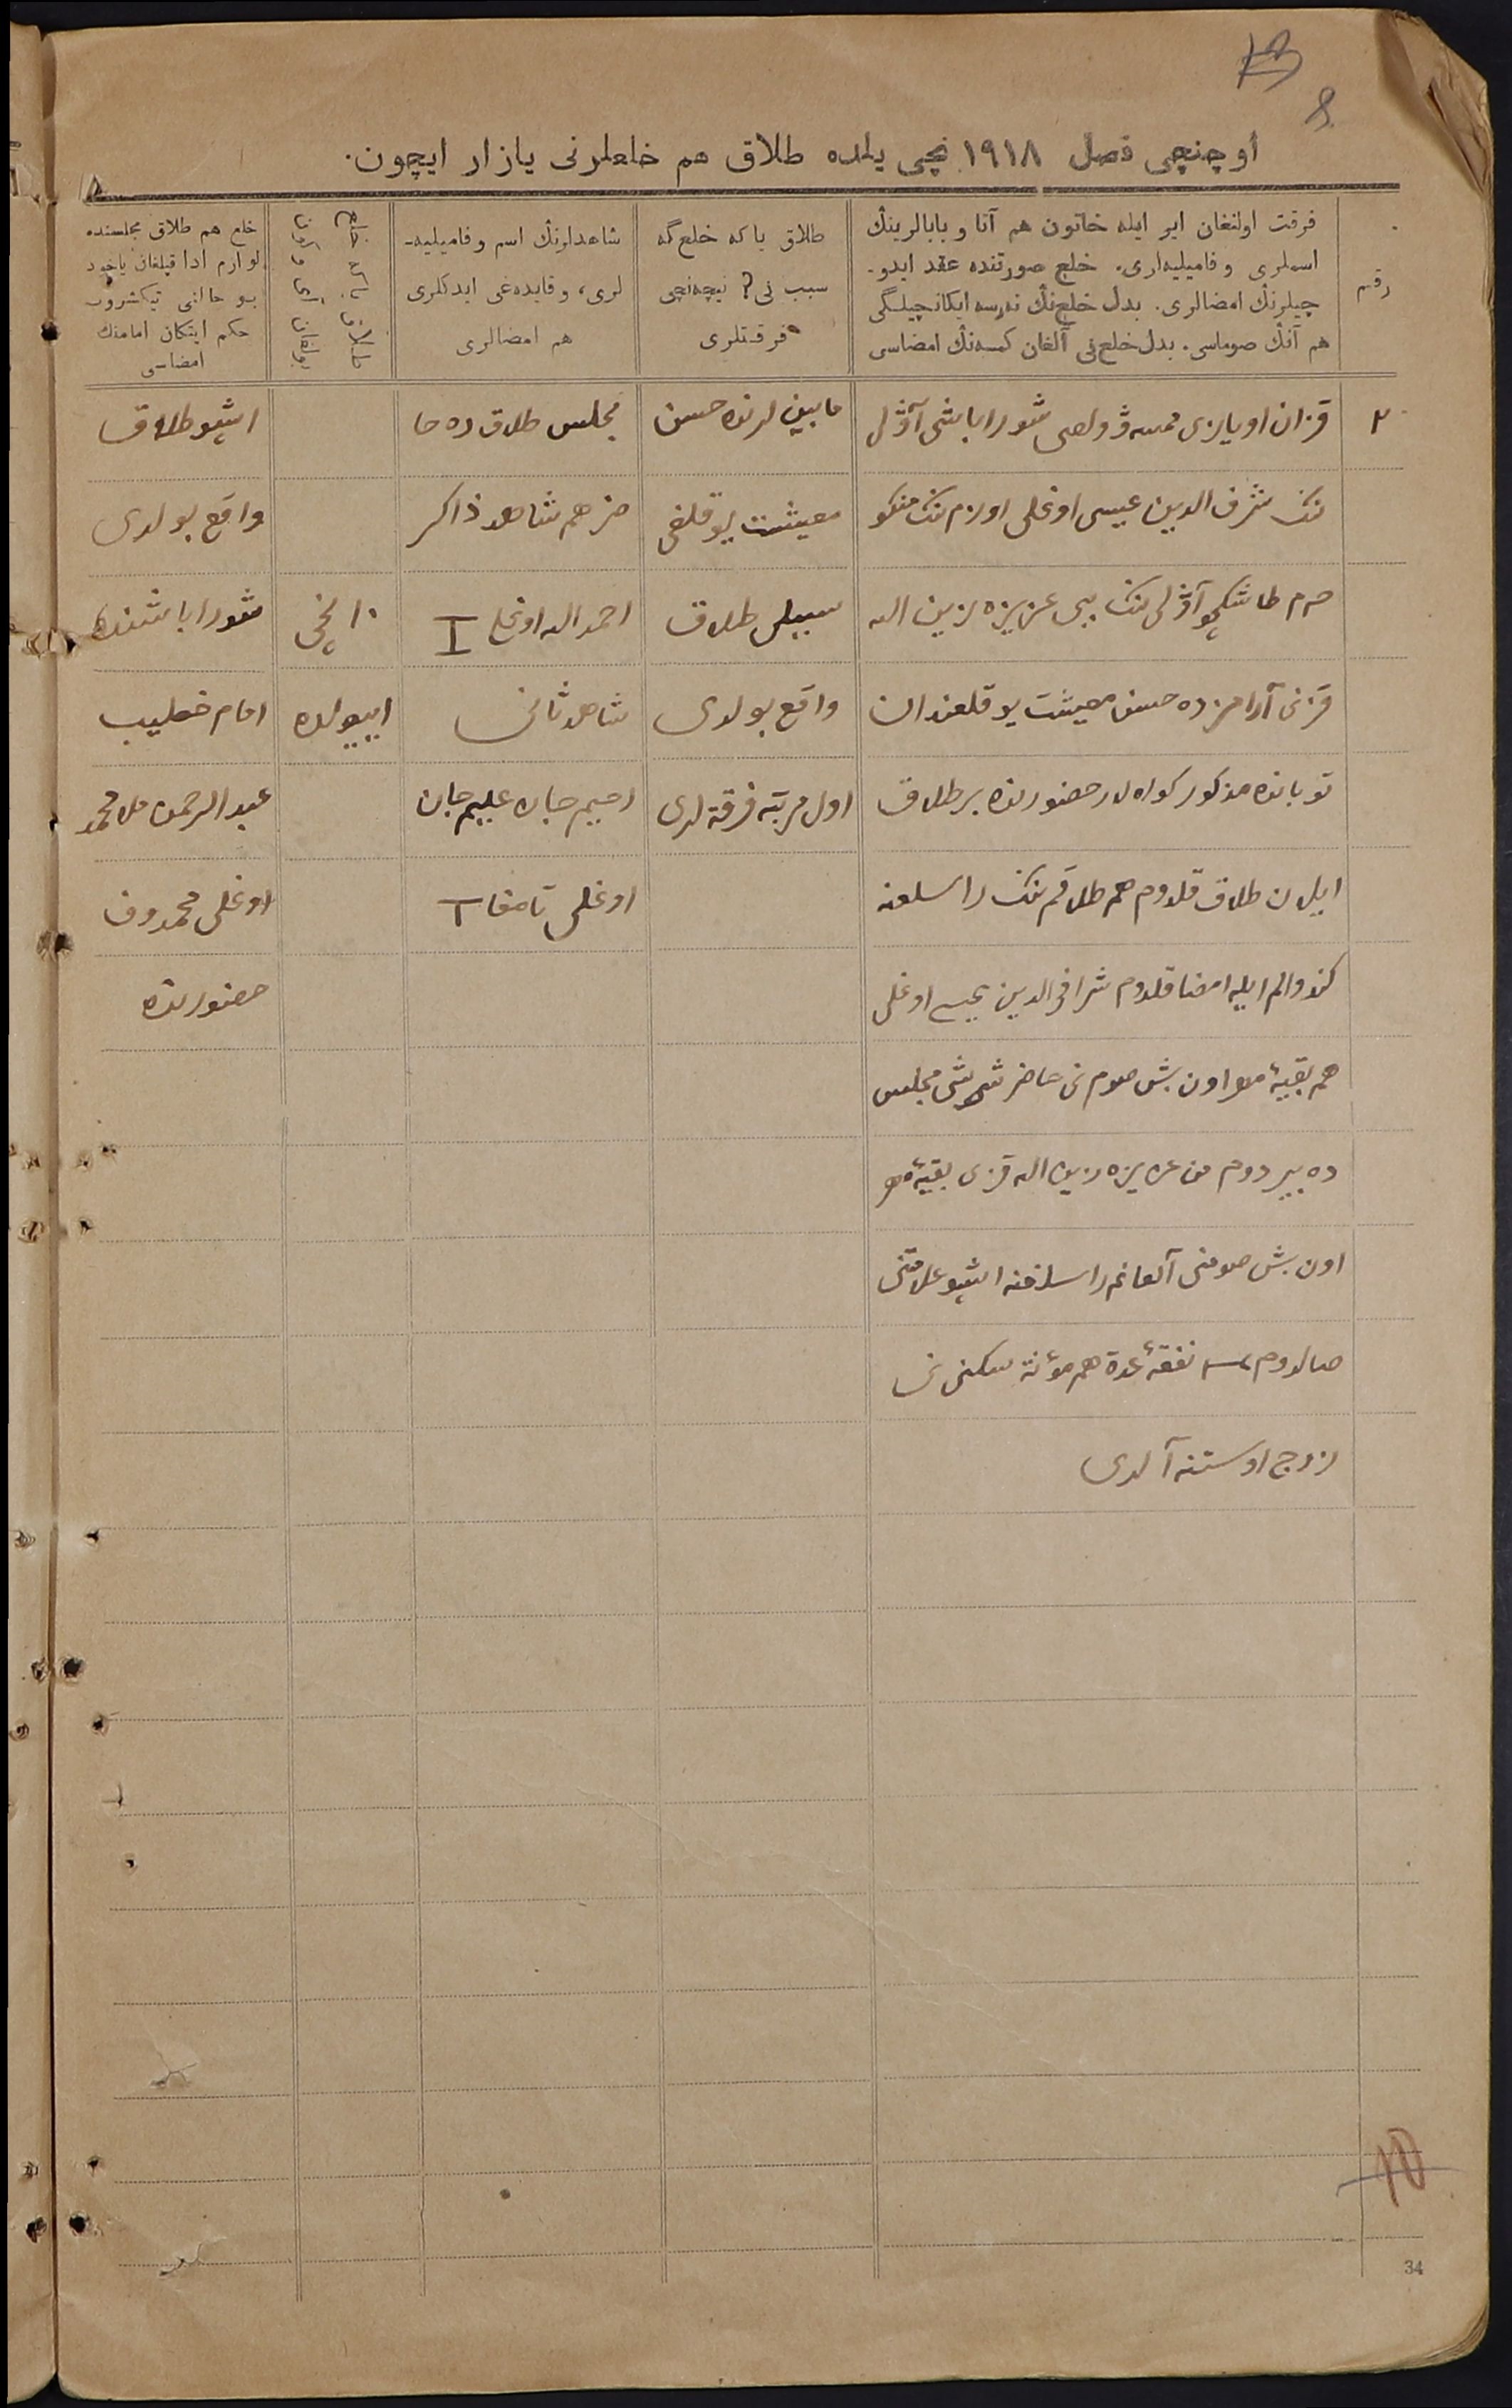 8
اوچنچی فصل ۱۹۱۸ نچی یلده طلاق هم خلعلرنی یازار ایچون.
رقم
فرقت اولنغان ایر ایله خاتون هم آنا و بابالرینڭ
اسملری و فامیلیه‌لری. خلع صورتنده عقد ایدو-
چیلرنڭ امضالری. بدل خلع‌نڭ نه‌رسه ایکانچیلگی
هم آنڭ صوماسی. بدل خلع‌نی آلغان کمسه‌نڭ امضاسی
طلاق یا که خلع گه
سبب نی؟ نیچه‌نچی
فرقتلری
شاهدلرنڭ اسم و فامیلیه-
لری، و قایده‌غی ایدکلری
هم امضالری
طلاق یا که خلع
بولغان آی و کون
خلع هم طلاق مجلسنده
لوازم ادا قیلغان یاخود
بو حالنی تیکشروب
حکم ایتکان امامنڭ
امضاسی
۲
قزان اویازی ممسه ڤولصی شورابا‌شی آوڭل
نڭ شرف الدین عیسی اوغلی اوزم‌نڭ منکو
حرم طاشکچو آوڭلی‌نڭ بی‌بی عزیزه زین الله
قزنی آرامزده حسن معیشت یوقلغندان
توبانده مذکور کواه‌لار حضورنده بر طلاق
ایلان طلاق قلدوم هم طلاقم‌نڭ راسلغنه
کندو الم ایله امضا قلدوم شرافی الدین عیسی اوغلی
هم بقیهٔ مهر اون بش صوم‌نی حاضر شوشی مجلس
ده بیردوم من عزیزه زین الله قزی بقیهٔ مهر
اون بش صومنی آلغانم راسلغنه اشبو علامتنی
صالدوم نفقهٔ عدة هم مؤنة سکنی‌نی
زوج اوستنه آلدی
مابینلرنده حسن
معیشت یوقلغی
سببلی طلاق
واقع بولدی
اول مرتبه فرقة‌لری
مجلس طلاق‌ده حا
ضر هم شاهد ذاکر
احمد الله اوغلی I
شاهد ثانی
رحیم جان علیم جان
اوغلی تامغا T
۱۰ نچی
اییولده
اشبو طلاق
واقع بولدی
شورا باشنده
امام خطیب
عبدالرحمن ملا محمد
اوغلی محمدوف
حضورنده
10
34